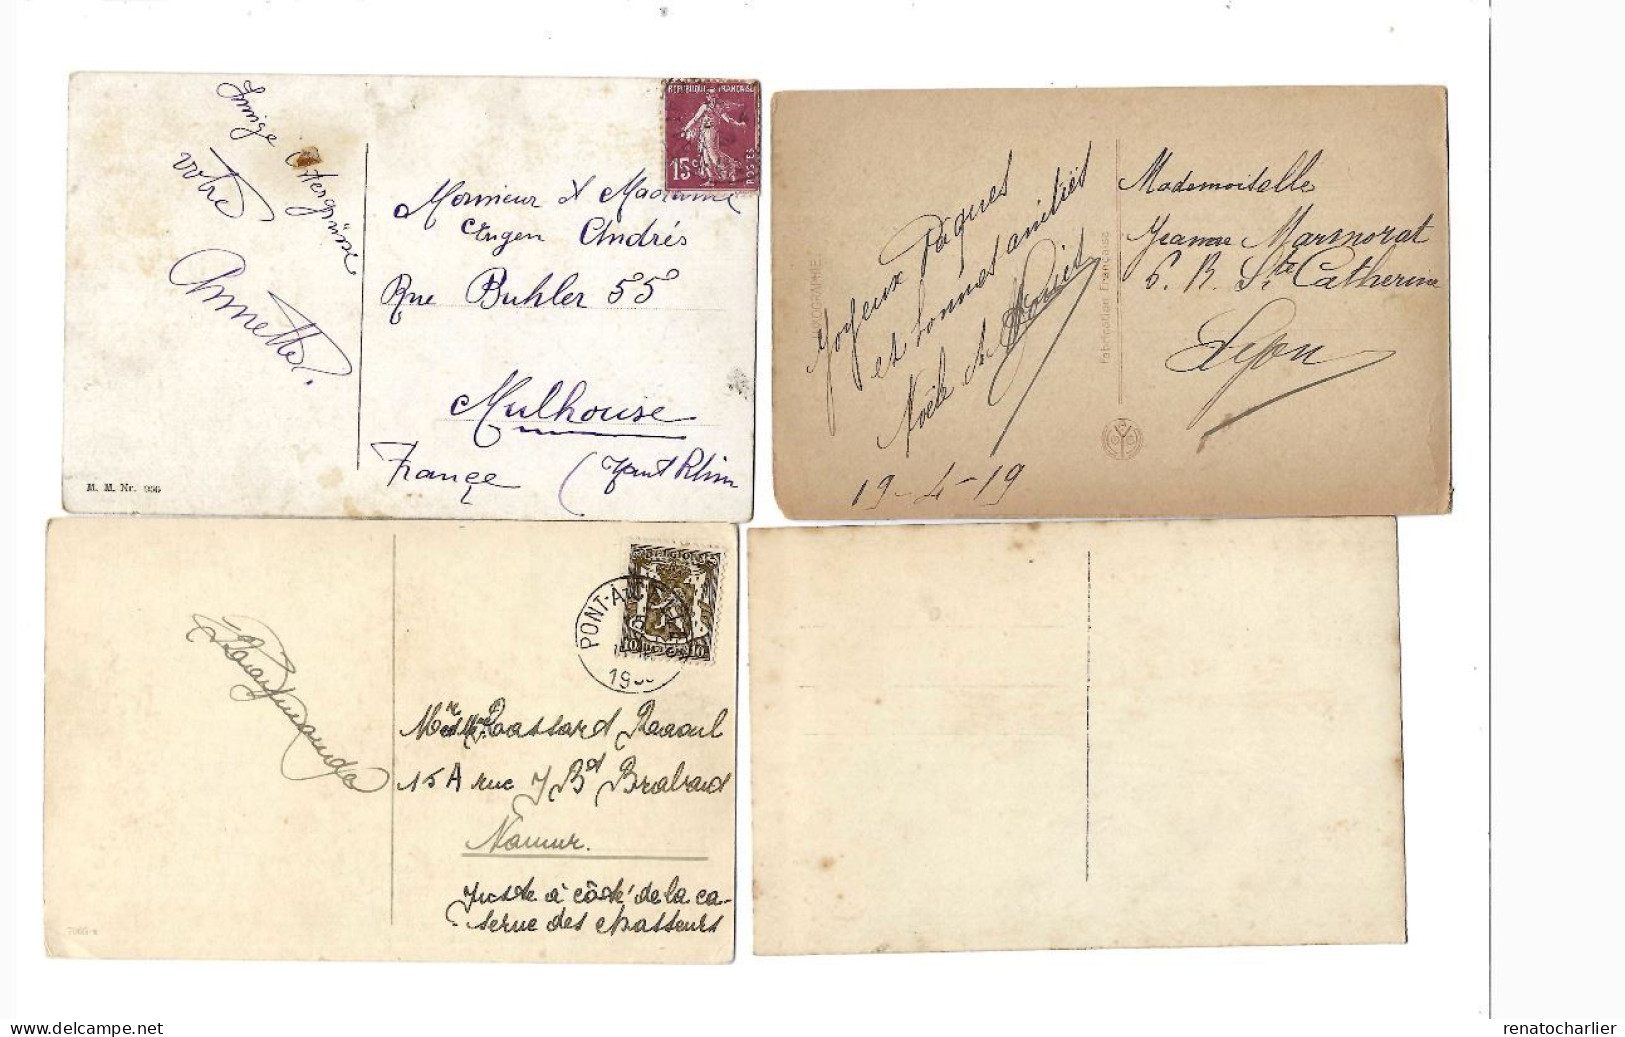 Innige Ostergrüsse
votre
Annette.
RÉPUBLIQUE FRANÇAISE
15 c
POSTES
Monsieur & Madame
Eugen Andrés
Rue Buhler 55
Mulhouse
France (Haut Rhin
M. M. Nr. 956
Joyeux Pâques
et bonnes amitiés
19-4-19
Fabrication Française
Mademoiselle
Jeanne Marmorat
6. R. Ste Catherine
Lyon
BELGIQUE
10 10
BELGIE
PONT-À-C
19
Raassard Raoul
15 A rue J Bd Brabant
Namur.
Juste à côté de la ca-
serne des chasseurs
delcampe.net
renatocharlier